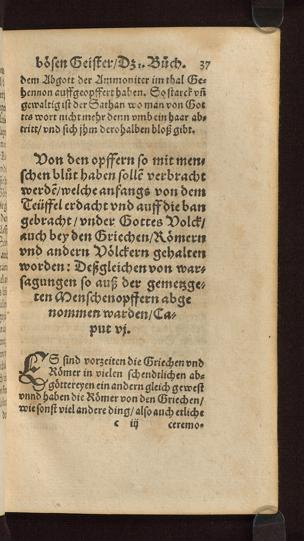 bösen Geister/Dz 1. Büch. 37
dem Abgott der Ammoniter im thal Ge-
hennon auffgeopffert haben. So starck vñ
gewaltig ist der Sathan wo man von Got
tes wort nicht mehr denn vmb ein haar ab-
tritt/vnd sich jhm derohalben bloß gibt.
Von den opffern so mit men-
schen blüt haben sollē verbracht
werdē/welche anfangs von dem
Teüffel erdacht vnd auff die ban
gebracht/vnder Gottes Volck/
auch bey den Griechen/Römern
vnd andern Völckern gehalten
worden: Deßgleichen von war-
sagungen so auß der gemetzge-
ten Menschenopffern abge
nommen warden/Ca-
put vj.
ES sind vorzeiten die Griechen vnd
Römer in vielen schendtlichen ab-
göttereyen ein andern gleich gewest
vnnd haben die Römer von den Griechen/
wie sonst viel andere ding/also auch etliche
c iij ceremo-